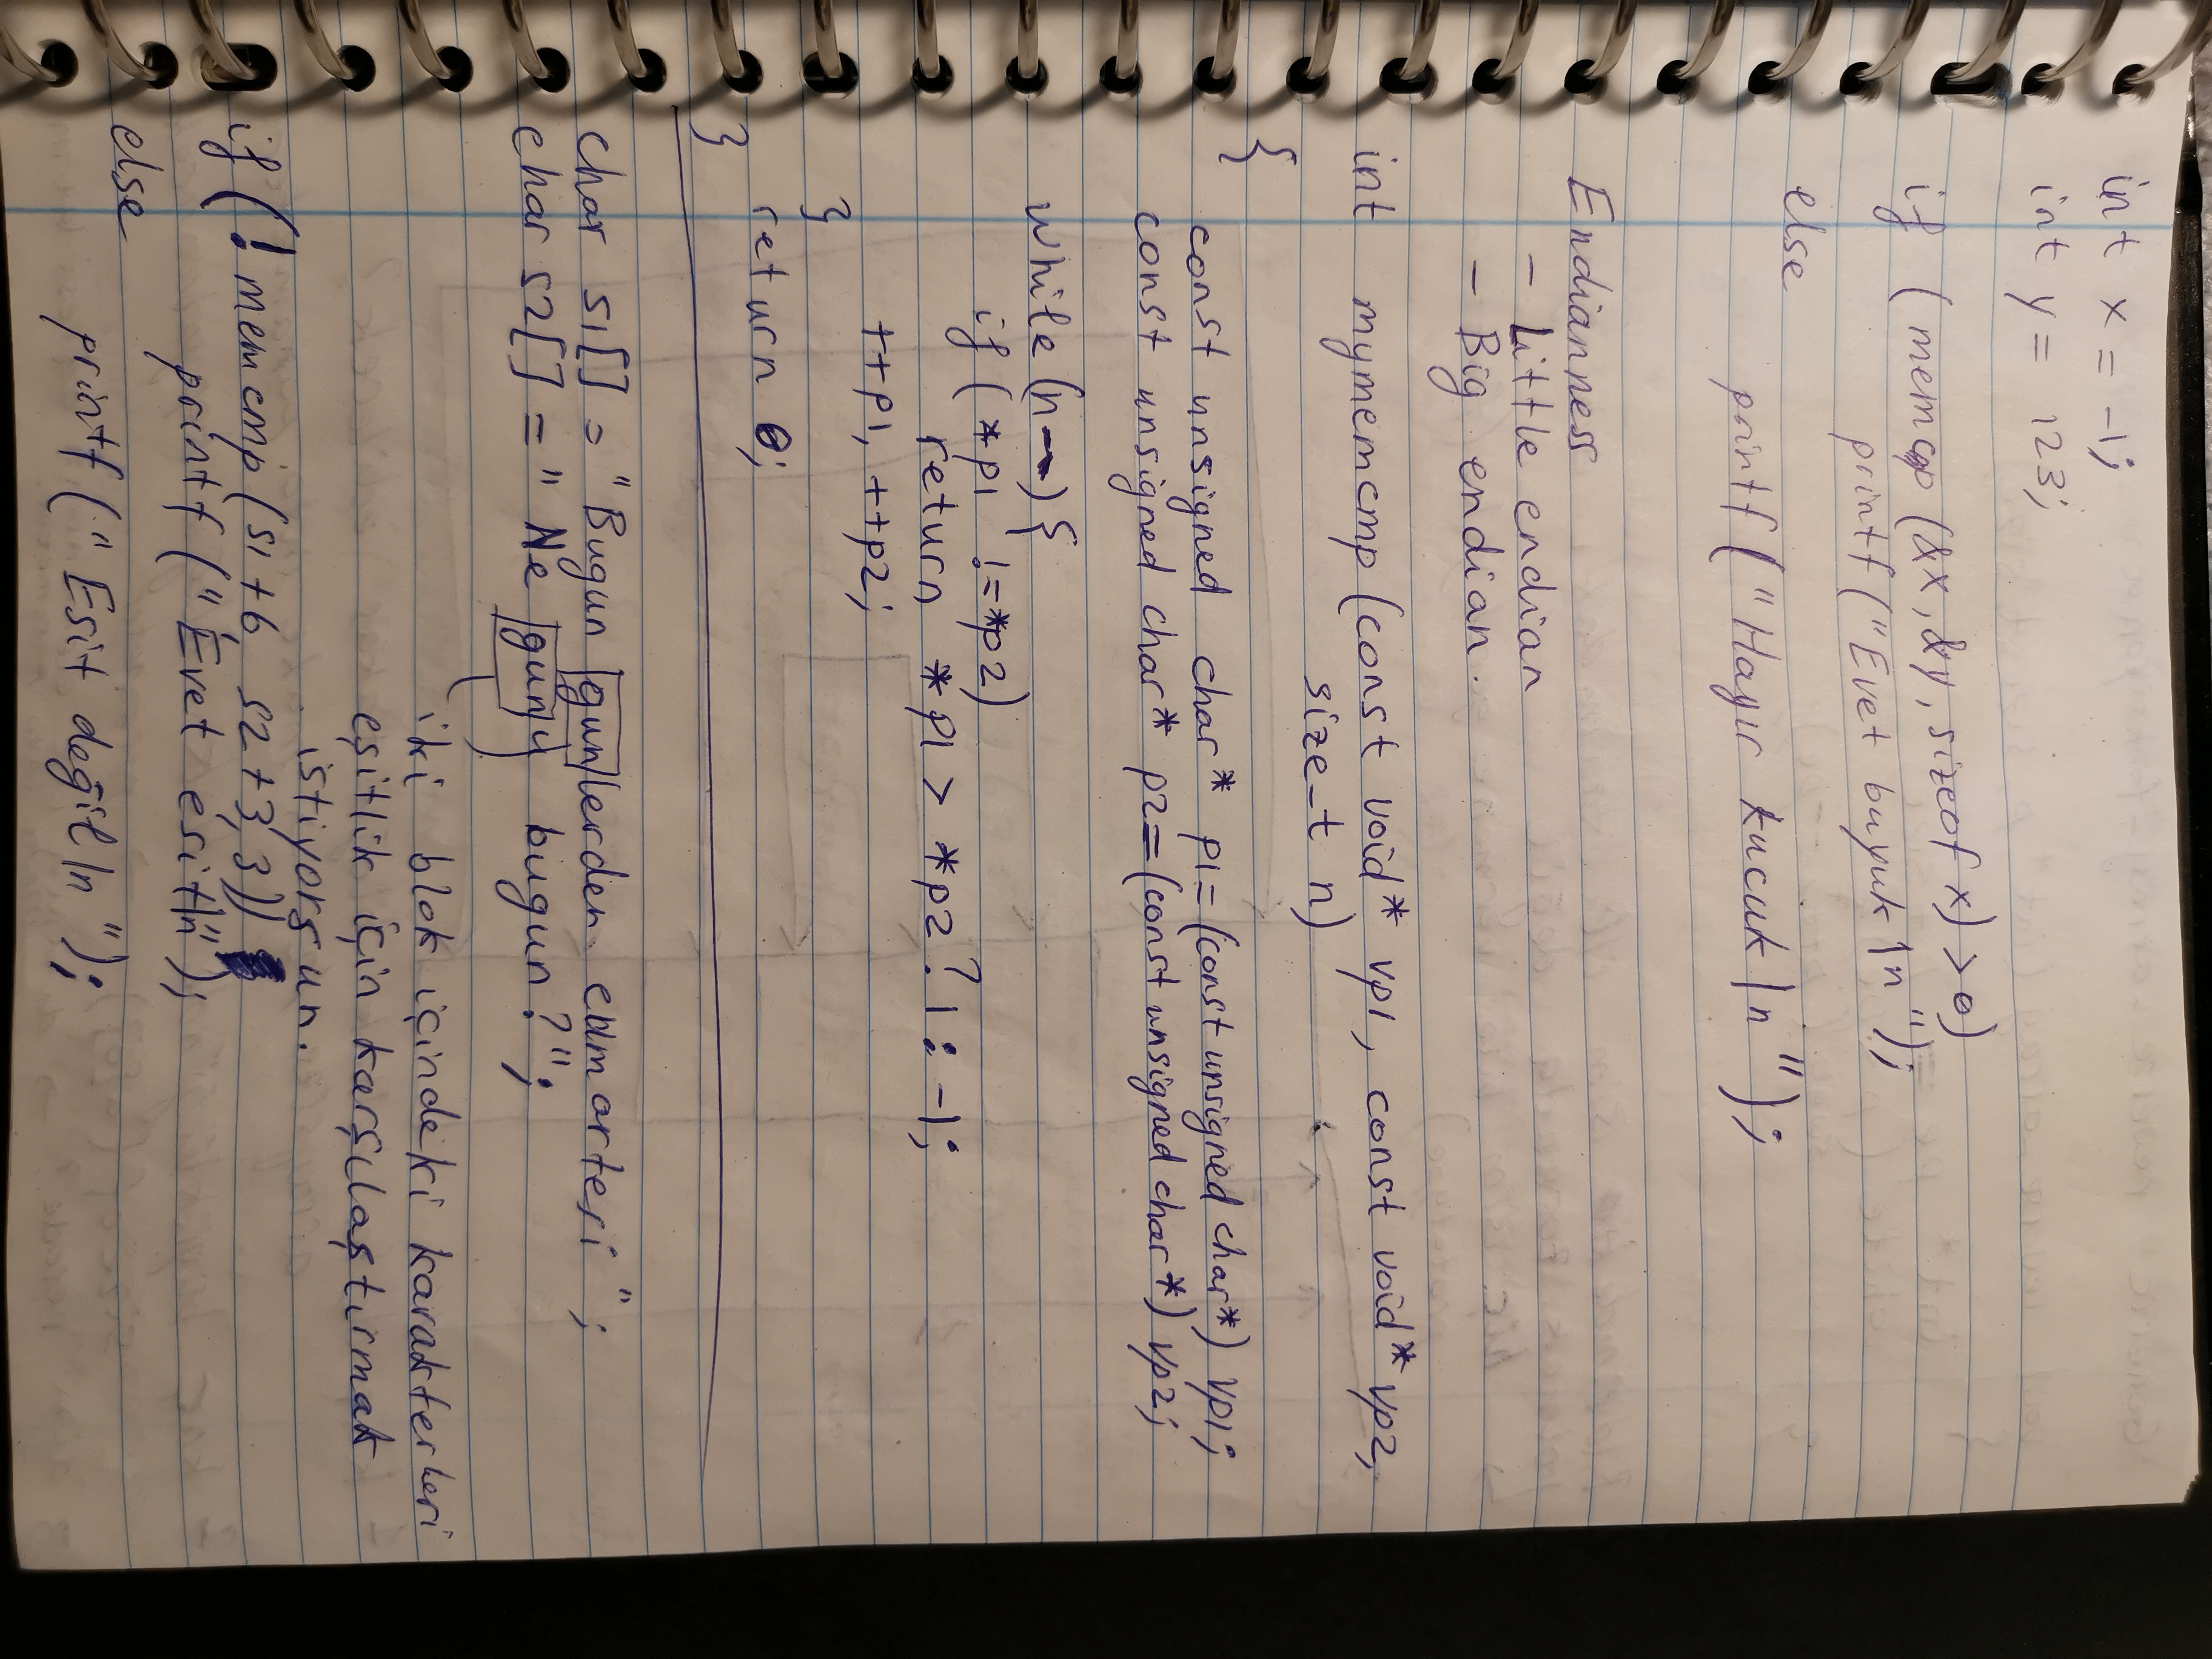 int x = -1;
int y = 123;
if (memcmp (&x, &y, sizeof x) > 0)
printf ("Evet buyuk \n");
else
printf ("Hayır kucuk \n");
Endianness
- Little endian
- Big endian.
int mymemcmp (const void* vp1, const void* vp2,
size_t n)
{
const unsigned char* p1 = (const unsigned char*) vp1;
const unsigned char* p2 = (const unsigned char*) vp2;
while (n--) {
if (*p1 != *p2)
return *p1 > *p2 ? 1 : -1;
++p1, ++p2;
}
return 0;
}
char s1[] = "Bugun gunlerden cumartesi";
char s2[] = "Ne gun bugun?";
iki blok içindeki karakterleri
eşitlik için karşılaştırmak
istiyorsun.
if (! memcmp (s1+6, s2+3, 3))
printf ("Evet esit\n");
else
printf ("Esit değil \n");